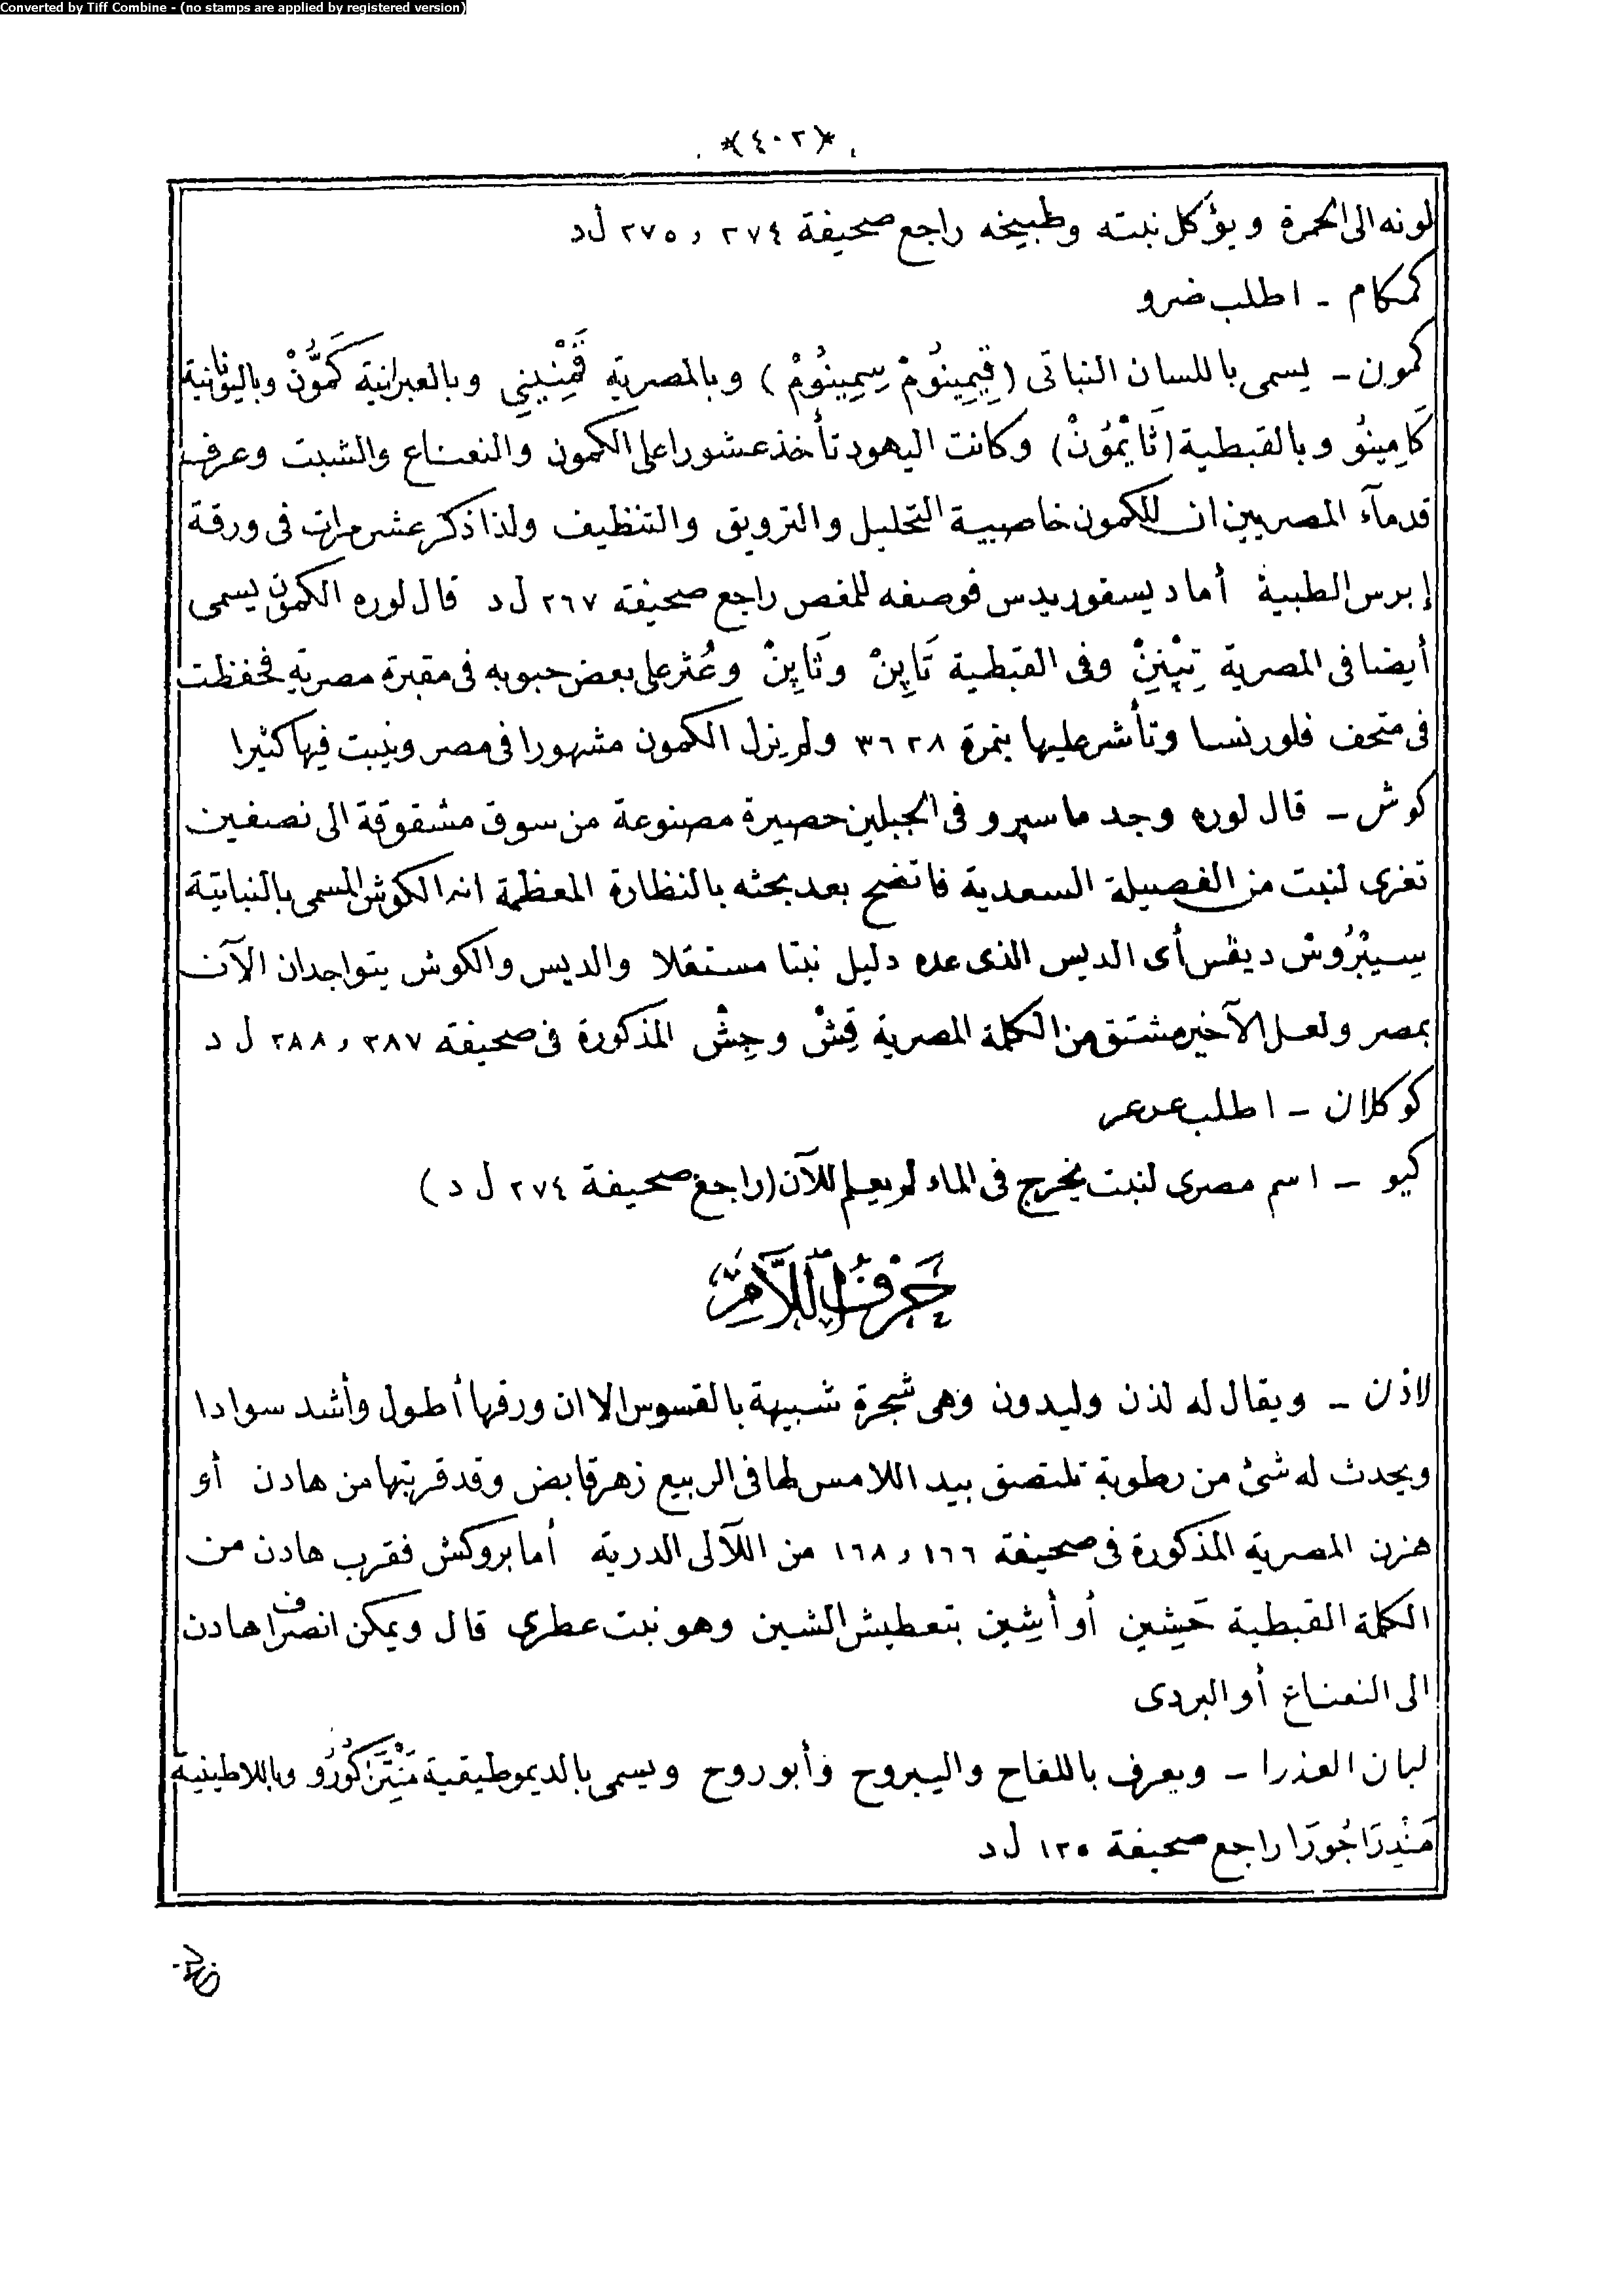 Converted by Tiff Combine - (no stamps are applied by registered version)
*(٤٠٢)*
لونه الى الحمرة ويؤكل نبته وطبيخه راجع صحيفة ٢٧٤ , ٢٧٥ ل د
كمكام ـ اطلب ضرو
كمون ـ يسمى باللسان النباتى (قِيمِينُومْ سِمِينُومْ) وبالمصرية قَمْنِينِي وبالعبرانية كَمُّونْ وباليونانية
كَامِينُو وبالقبطية (ثَايْمُونْ) وكانت اليهود تأخذ عشورا على الكمون والنعناع والشبت وعرف
قدمآء المصريين ان للكمون خاصية التحليل والترويق والتنظيف ولذا ذكر عشر مرات فى ورقة
إبرس الطبية أما ديسقوريدس فوصفه للمغص راجع صحيفة ٢٦٧ ل د قال لوره الكمون يسمى
أيضا فى المصرية تِپْنِنْ وفى القبطية تَاپِنْ وثَاپِنْ وعُثر على بعض حبوبه فى مقبرة مصرية فحفظت
فى متحف فلورنسا وتأشر عليها بنمرة ٣٦٢٨ ولم يزل الكمون مشهورا فى مصر وينبت فيها كثيرا
كوش ـ قال لوره وجد ماسپرو فى الجبلين حصيرة مصنوعة من سوق مشقوقة الى نصفين
تعزى لنبت من الفصيلة السعدية فاتضح بعد بحثه بالنظارة المعظمة انه الكوش المسمى بالنباتية
سِيبْرُوسْ ديقس أى الديس الذى عده دليل نبتا مستقلا والديس والكوش يتواجدان الآن
بمصر ولعل الآخير مشتق من الكلمة المصرية قِشْ وجِشْ المذكورة فى صحيفة ٢٨٧ , ٢٨٨ ل د
كوكلان ـ اطلب عرعر
كيو ـ اسم مصرى لنبت يخرج فى الماء لم يعلم للآن (راجع صحيفة ٢٧٤ ل د)
حَرْفُ اللَّامِ
لاذن ـ ويقال له لذن وليدون وهى شجرة شبيهة بالقسوس الا ان ورقها أطول وأشد سوادا
ويحدث له شئ من رطوبة تلتصق بيد اللامس لها فى الربيع زهر قابض وقد قربتها من هادن أو
هزن المصرية المذكورة فى صحيفة ١٦٦ , ١٦٨ من اللآلى الدرية أما بروكش فقرب هادن من
الكلمة القبطية حَشِين أو أشِين بتعطيش الشين وهو نبت عطرى قال ويمكن انصراف هادن
الى النعناع أو البردى
لبان العذرا ـ ويعرف باللفاح واليبروح وأبوروح ويسمى بالديموطيقية مَنْتَرَكُورُو وباللاطينية
مَنْدِرَاجُورَا راجع صحيفة ١٢٥ ل د